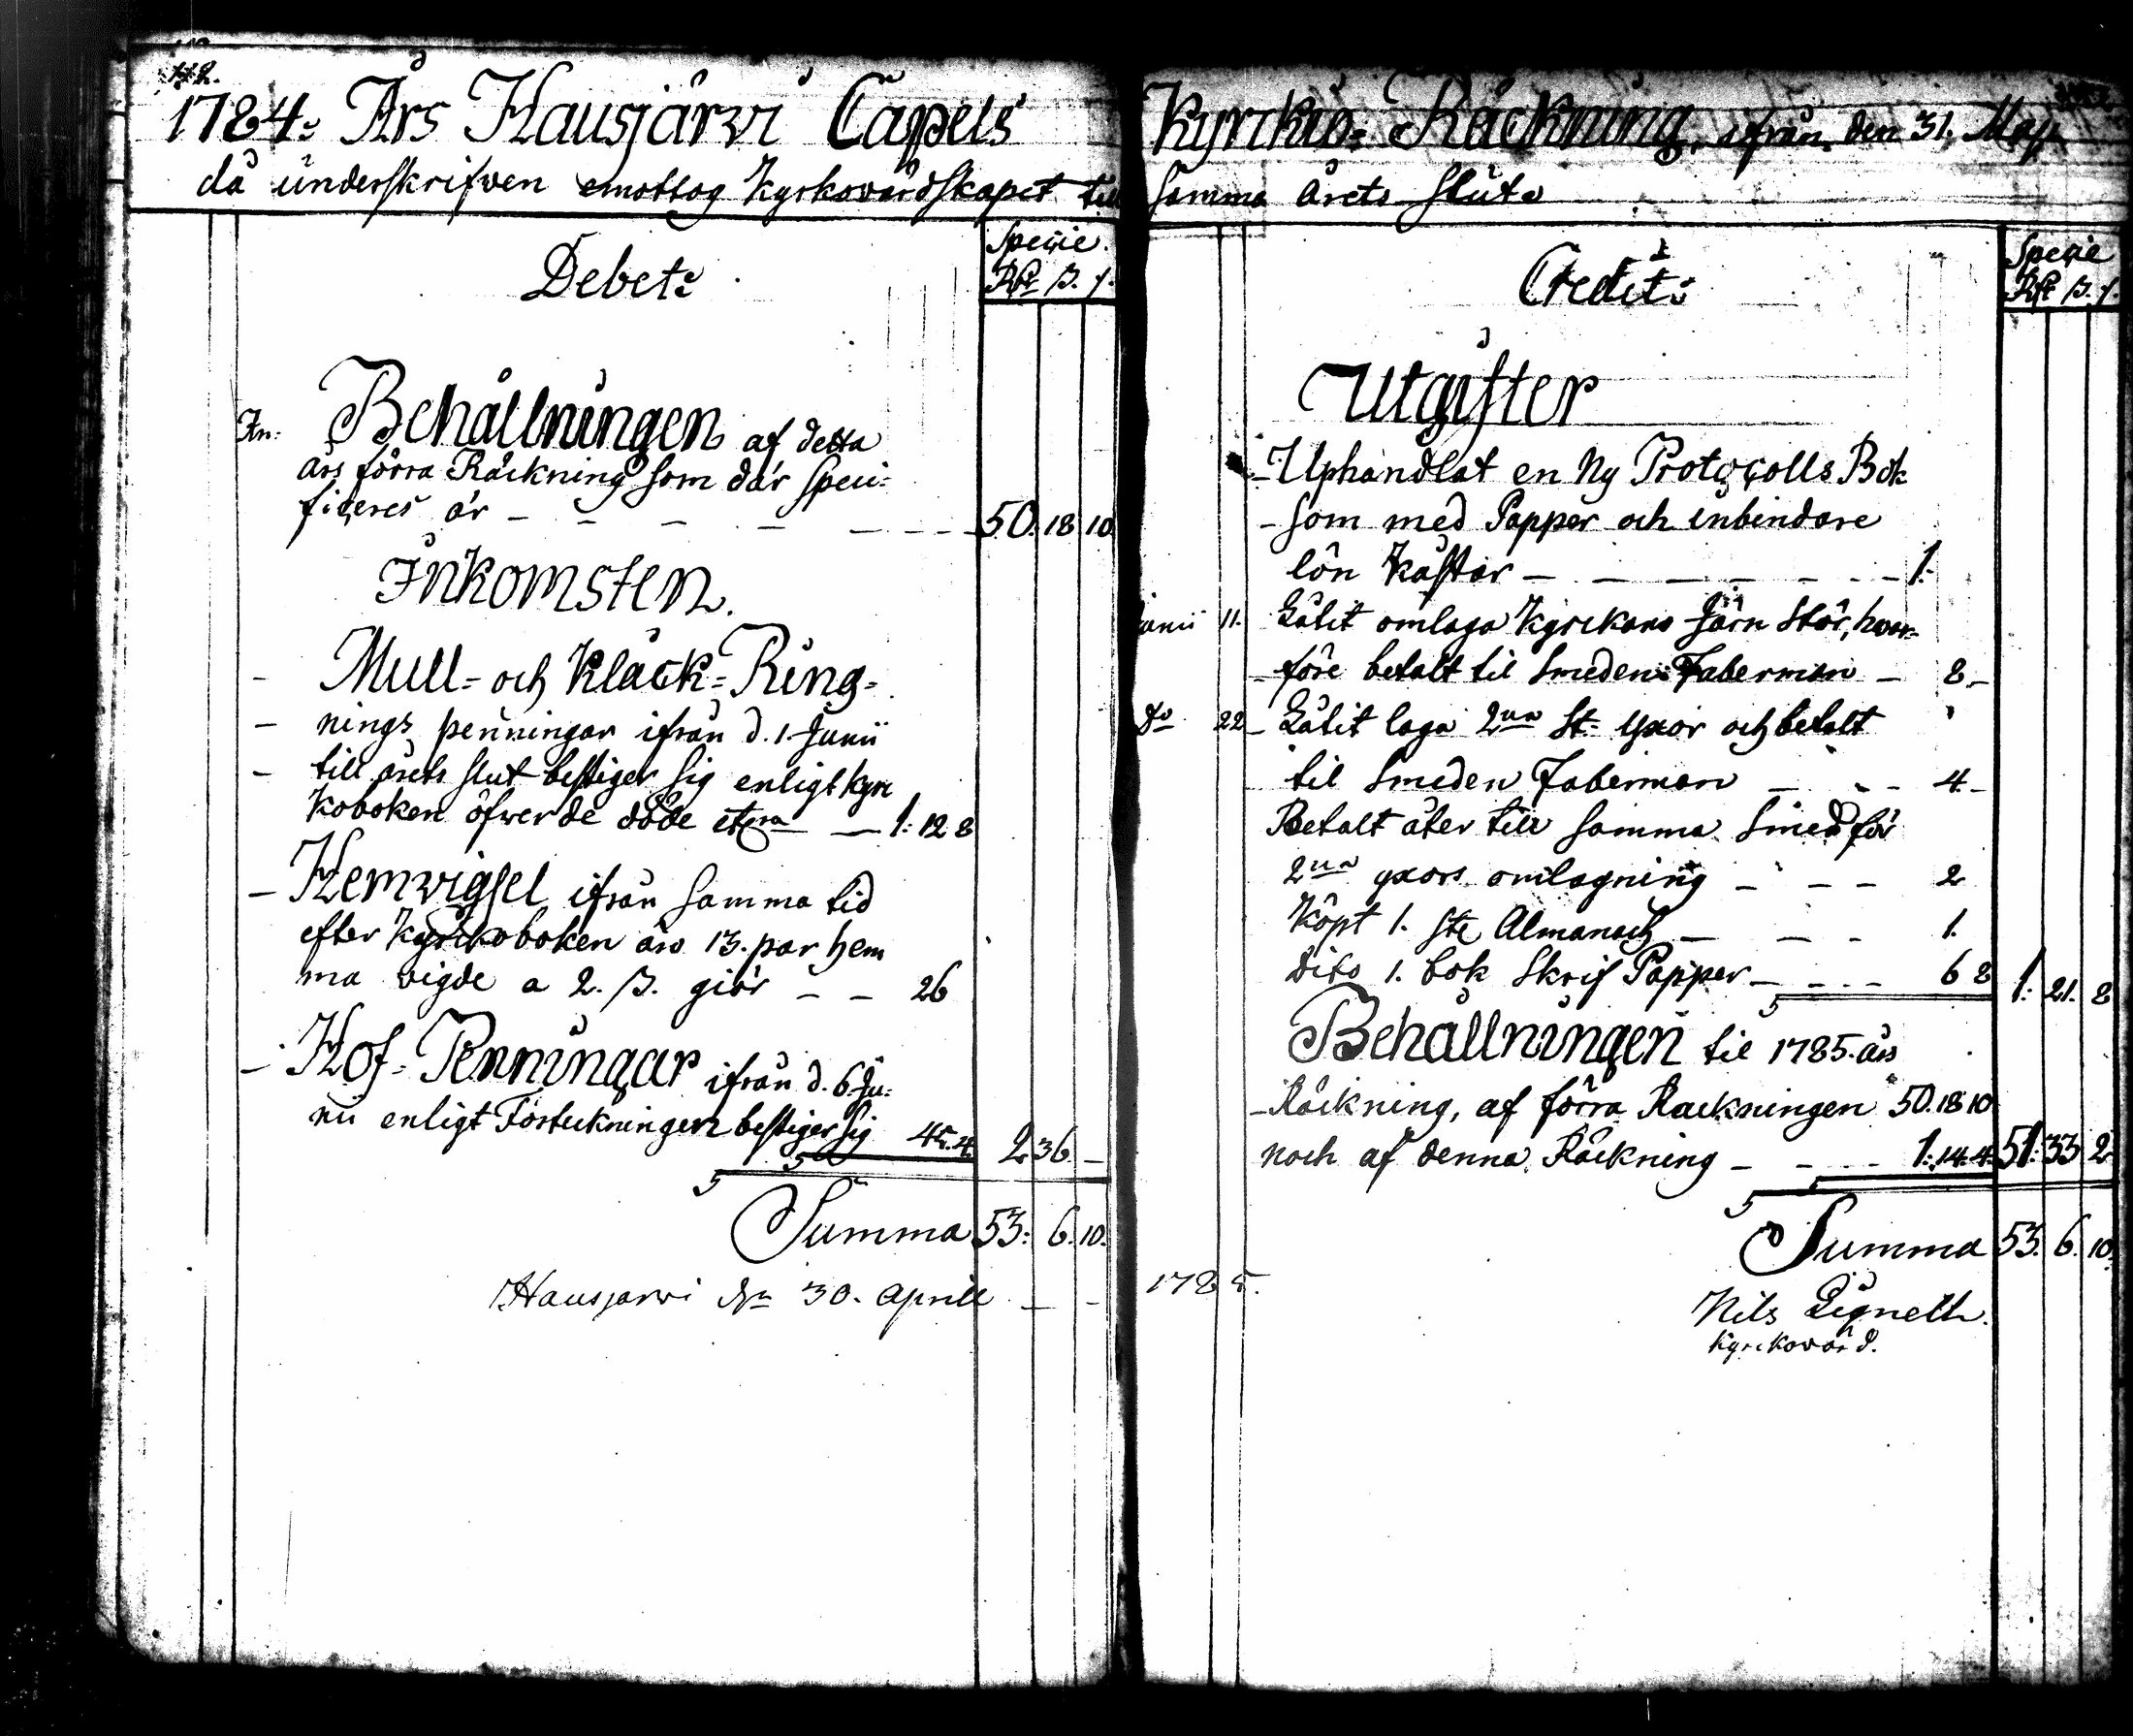 112.
1784. Års Hausjärwi Capels
då underskrifwen emottog Kyrkovärdskapet till
Debet:
Specie
Rdr ß. r.
In: Behållningen af detta
års förra Räckning som där speci-
ficeres är - - - - - - - 50. 18. 10
Inkomsten.
- Mull- och Kläck-Ring-
- nings penningar ifrån d. 1. Junii
- till årets slut bestiger sig enligt Kyr
koboken öfwer de döde etcra - 1: 12 8
- Hemvigsel ifrån samma tid
efter Kyrckoboken äro 13. par hem
ma vigde a 2. ß. giör - - 26
- Hof-Penningar ifrån d. 6. Ju-
nii enligt Förteckningen bestiger sig 45. 4. 2 36. -
Summa 53: 6. 10.
Hausjarwi den 30. Aprill - -
Kyrkio-Räckning, ifrån den 31. Maji
samma årets slut.
Credit:
Specie
Rdr ß. r.
Utgifter
- Uphandlat en Ny Protocolls Bok
- som med Papper och inbindare
lön kåstar - - - - - - - 1.-
Junii 11. Låtit omlaga Kyrckans Järn Stör, hvar-
- före betalt til Smeden Faberman - 8 -
Do 22 - Låtit laga 2na St. yxor och betalt
til Smeden Faberman - - - 4 -
Betalt åter till samma Smed för
2na yxors omlagning - - - 2
Köpt 1. ste Almanach - - - 1.
dito 1. bok Skrif Papper - - - - 6 8 1. 21. 8
Behållningen til 1785. års
- Räckning, af förra Rackningen 50. 18 10
noch af denna Räckning - - - - 1. 14. 4. 51: 33 2
Summa 53. 6. 10.
1785.
Nils Lignell.
Kyrckovärd.